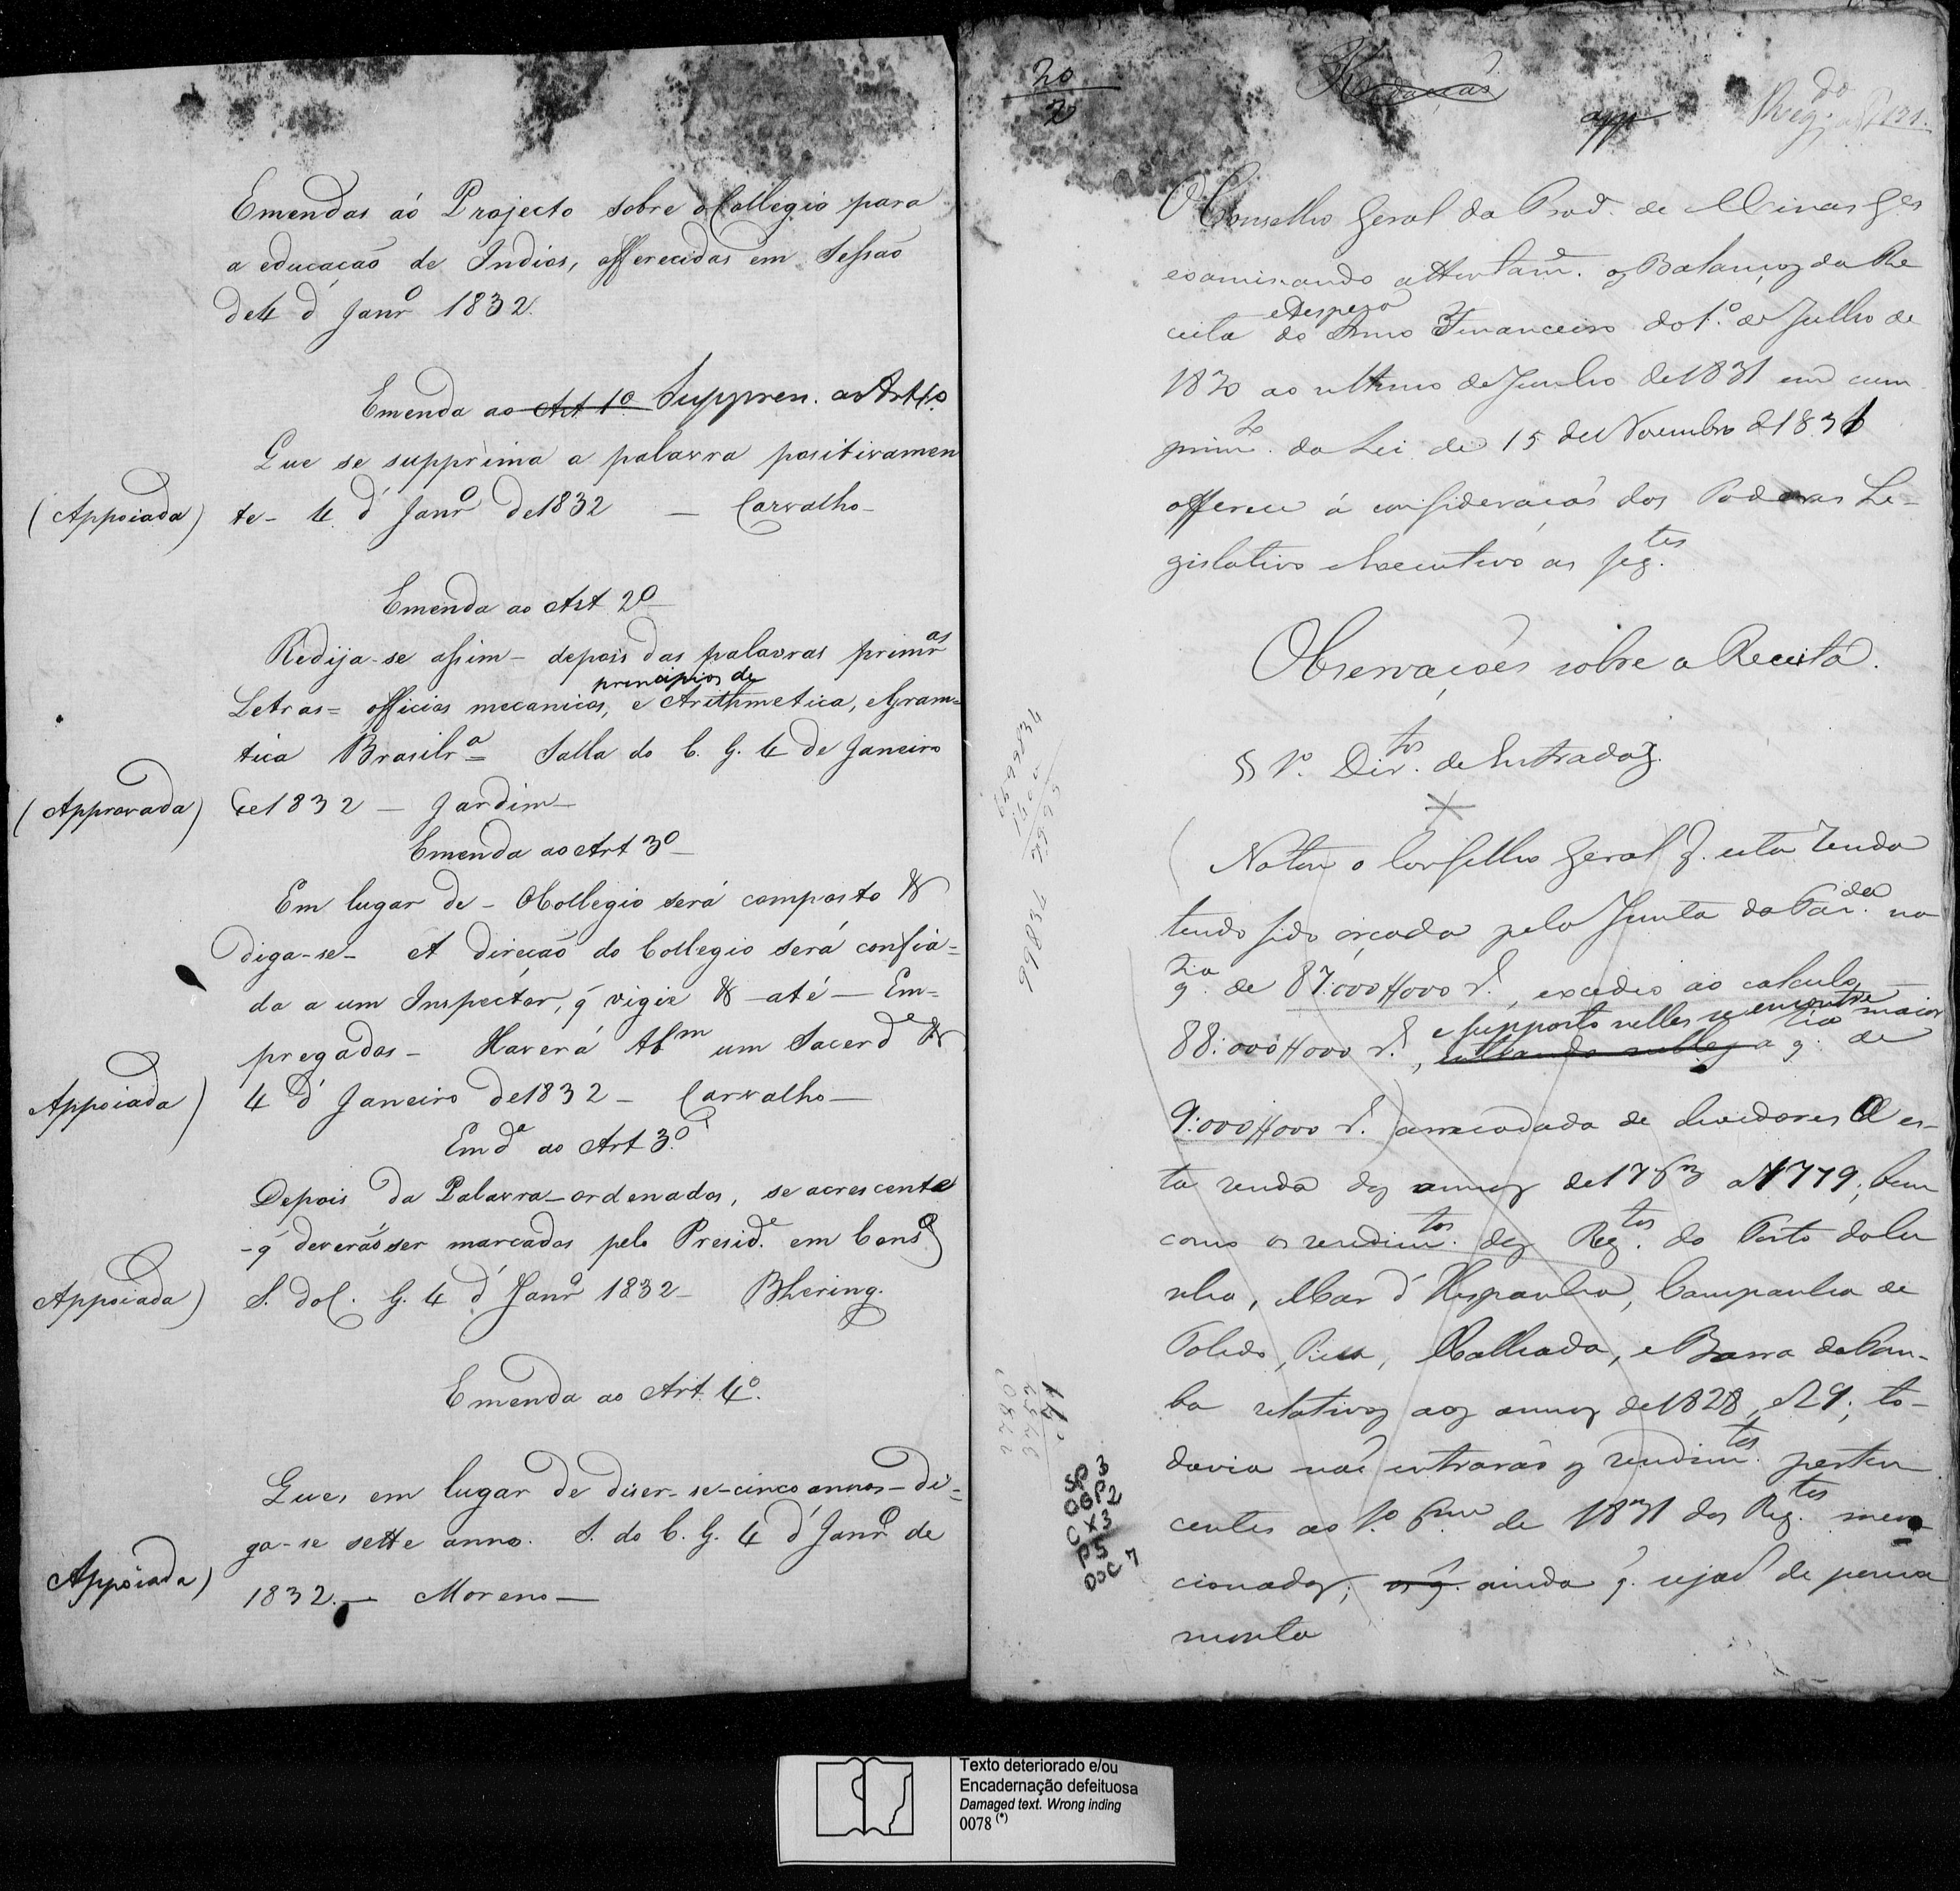 Emendas aó Projecto sobre o Collegio para
a educação de Indios, offerecidas em Sessaõ
de 4 d' Janr.o 1832.
Emenda ao Art 1.o Suppren. ao Art 1.o
Que se supprima a palavra positivamen
(Appoiada) te - 4 d' Janr.o de 1832 — Carvalho -
Emenda ao Art 2.o
Redija-se assim - depois das palavras primr.as
principios de
Letras = officios mecanicos, e Arithmetica, e Gram=
tica Brasilr.a = Salla do C. G. 4 de Janeiro
(Approvada) de 1832 — Jardim —
Emenda ao Art 3.o
Em lugar de - O Collegio será composto &
diga-se - A direcaõ do Collegio será confia=
da a um Inspector, q̃ vigie & - até — Em=
pregados - Haverá tb.m um Sacerd.e &
Appoiada) 4 d' Janeiro de 1832 — Carvalho —
Emd.a ao Art 3.o
Depois da Palavra - ordenados, se acrescente
- q̃ deveraõ ser marcados pelo Presid.e em Cons.o
Appoiada) S. do C. G. 4 d' Janr.o 1832 - Bhering.
Emenda ao Art. 4.o
Que, em lugar de diser-se - cinco annos - di=
ga-se sette anno. S. do C. G. 4 d' Janr.o de
Appoiada) 1832. — Moreno —
20
2
Redacçaõ
app
O Conselho Geral da Prov. de Minas G.es
examinando attentam. os Balanços da Re
e Despeza
ceita do Anno Financeiro do 1.o de Julho de
1830 ao ultimo de Junho de 1831 em cum
prim.to da Lei de 15 de Novembro d 1831
offerece á consideraçaõ dos Poderes Le-
gislativo e Executivo as seg.tes
Observações sobre a Receita.
§ 1.o Dir.tos de Entradas.
(Notou o Conselho Geral q. esta renda
tendo sido orçada pela Junta da Faz.da na
q.tia de 87:000#000 r.s, excedeo ao calculo
e supposto nelles se encontre maior
88:000#000 r.s, entrando nelles a q.tia de
9:000#000 r.s) arrecadada de devedores d es-
ta renda dos annos de 1763 a 1779; bem
como os rendim.tos dos Reg.tos do Porto do Cu
nha, Mar d' Hespanha, Campanha de
Toledo, Picu, Malhada, e Barra do Pom-
ba relativos aos annos de 1828, e 29; to-
davia naõ entraraõ os rendim.tos perten
centes ao 1.o Sem.e de 1831 dos Reg.tos men
cionados; os q. ainda q. sejaõ de pouca
monta
SP 3
CGP2
CX3
P5
DOC 7
Texto deteriorado e/ou
Encadernação defeituosa
Damaged text. Wrong inding
0078 (*)